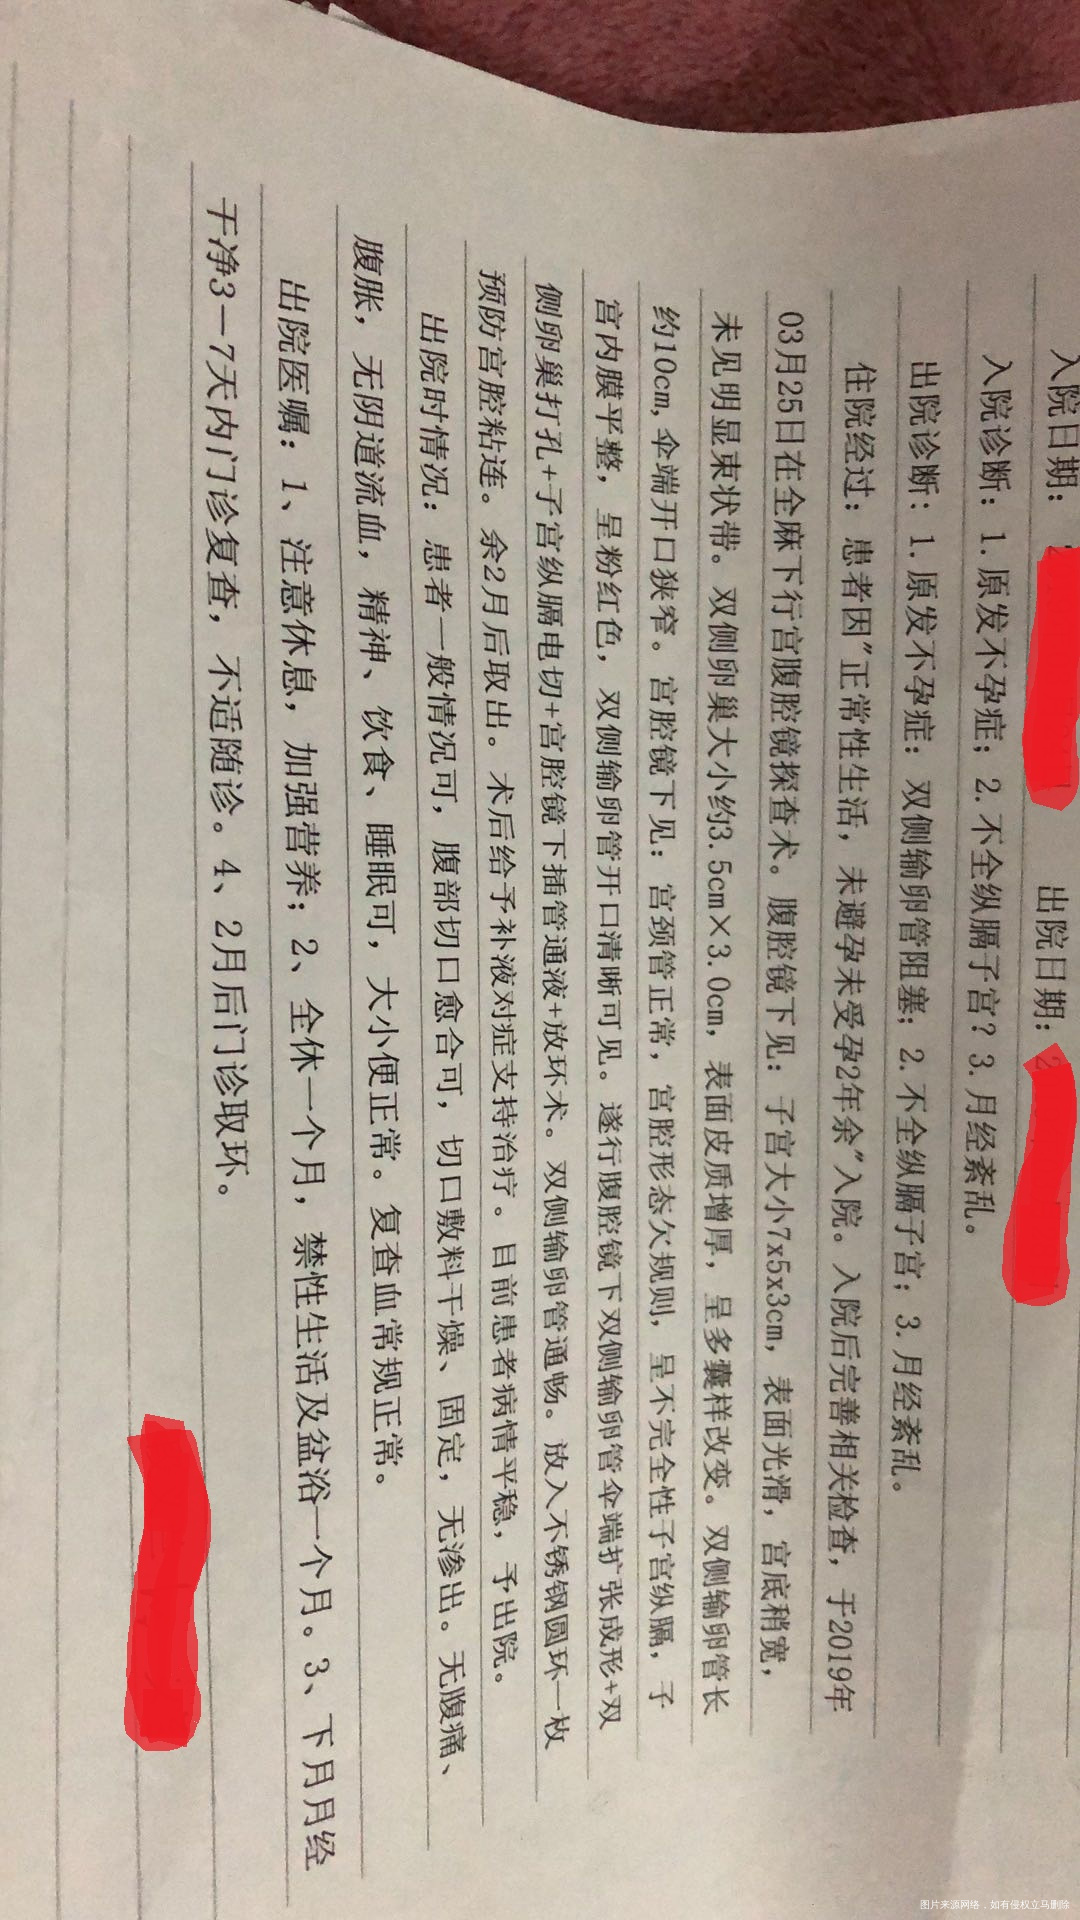 入院日期：
出院日期：2
入院诊断：1.原发不孕症；2.不全纵膈子宫？3.月经紊乱。
出院诊断：1.原发不孕症：双侧输卵管阻塞；2.不全纵膈子宫；3.月经紊乱。
住院经过：患者因"正常性生活，未避孕未受孕2年余"入院。入院后完善相关检查，于2019年
03月25日在全麻下行宫腹腔镜探查术。腹腔镜下见：子宫大小7x5x3cm，表面光滑，宫底稍宽，
未见明显束状带。双侧卵巢大小约3.5cm×3.0cm，表面皮质增厚，呈多囊样改变。双侧输卵管长
约10cm,伞端开口狭窄。宫腔镜下见：宫颈管正常，宫腔形态欠规则，呈不完全性子宫纵膈，子
宫内膜平整，呈粉红色，双侧输卵管开口清晰可见。遂行腹腔镜下双侧输卵管伞端扩张成形+双
侧卵巢打孔+子宫纵膈电切+宫腔镜下插管通液+放环术。双侧输卵管通畅。放入不锈钢圆环一枚
预防宫腔粘连。余2月后取出。术后给予补液对症支持治疗。目前患者病情平稳，予出院。
出院时情况：患者一般情况可，腹部切口愈合可，切口敷料干燥、固定，无渗出。无腹痛、
腹胀，无阴道流血，精神、饮食、睡眠可，大小便正常。复查血常规正常。
出院医嘱：1、注意休息，加强营养；2、全休一个月，禁性生活及盆浴一个月。3、下月月经
干净3－7天内门诊复查，不适随诊。4、2月后门诊取环。
图片来源网络，如有侵权立马删除